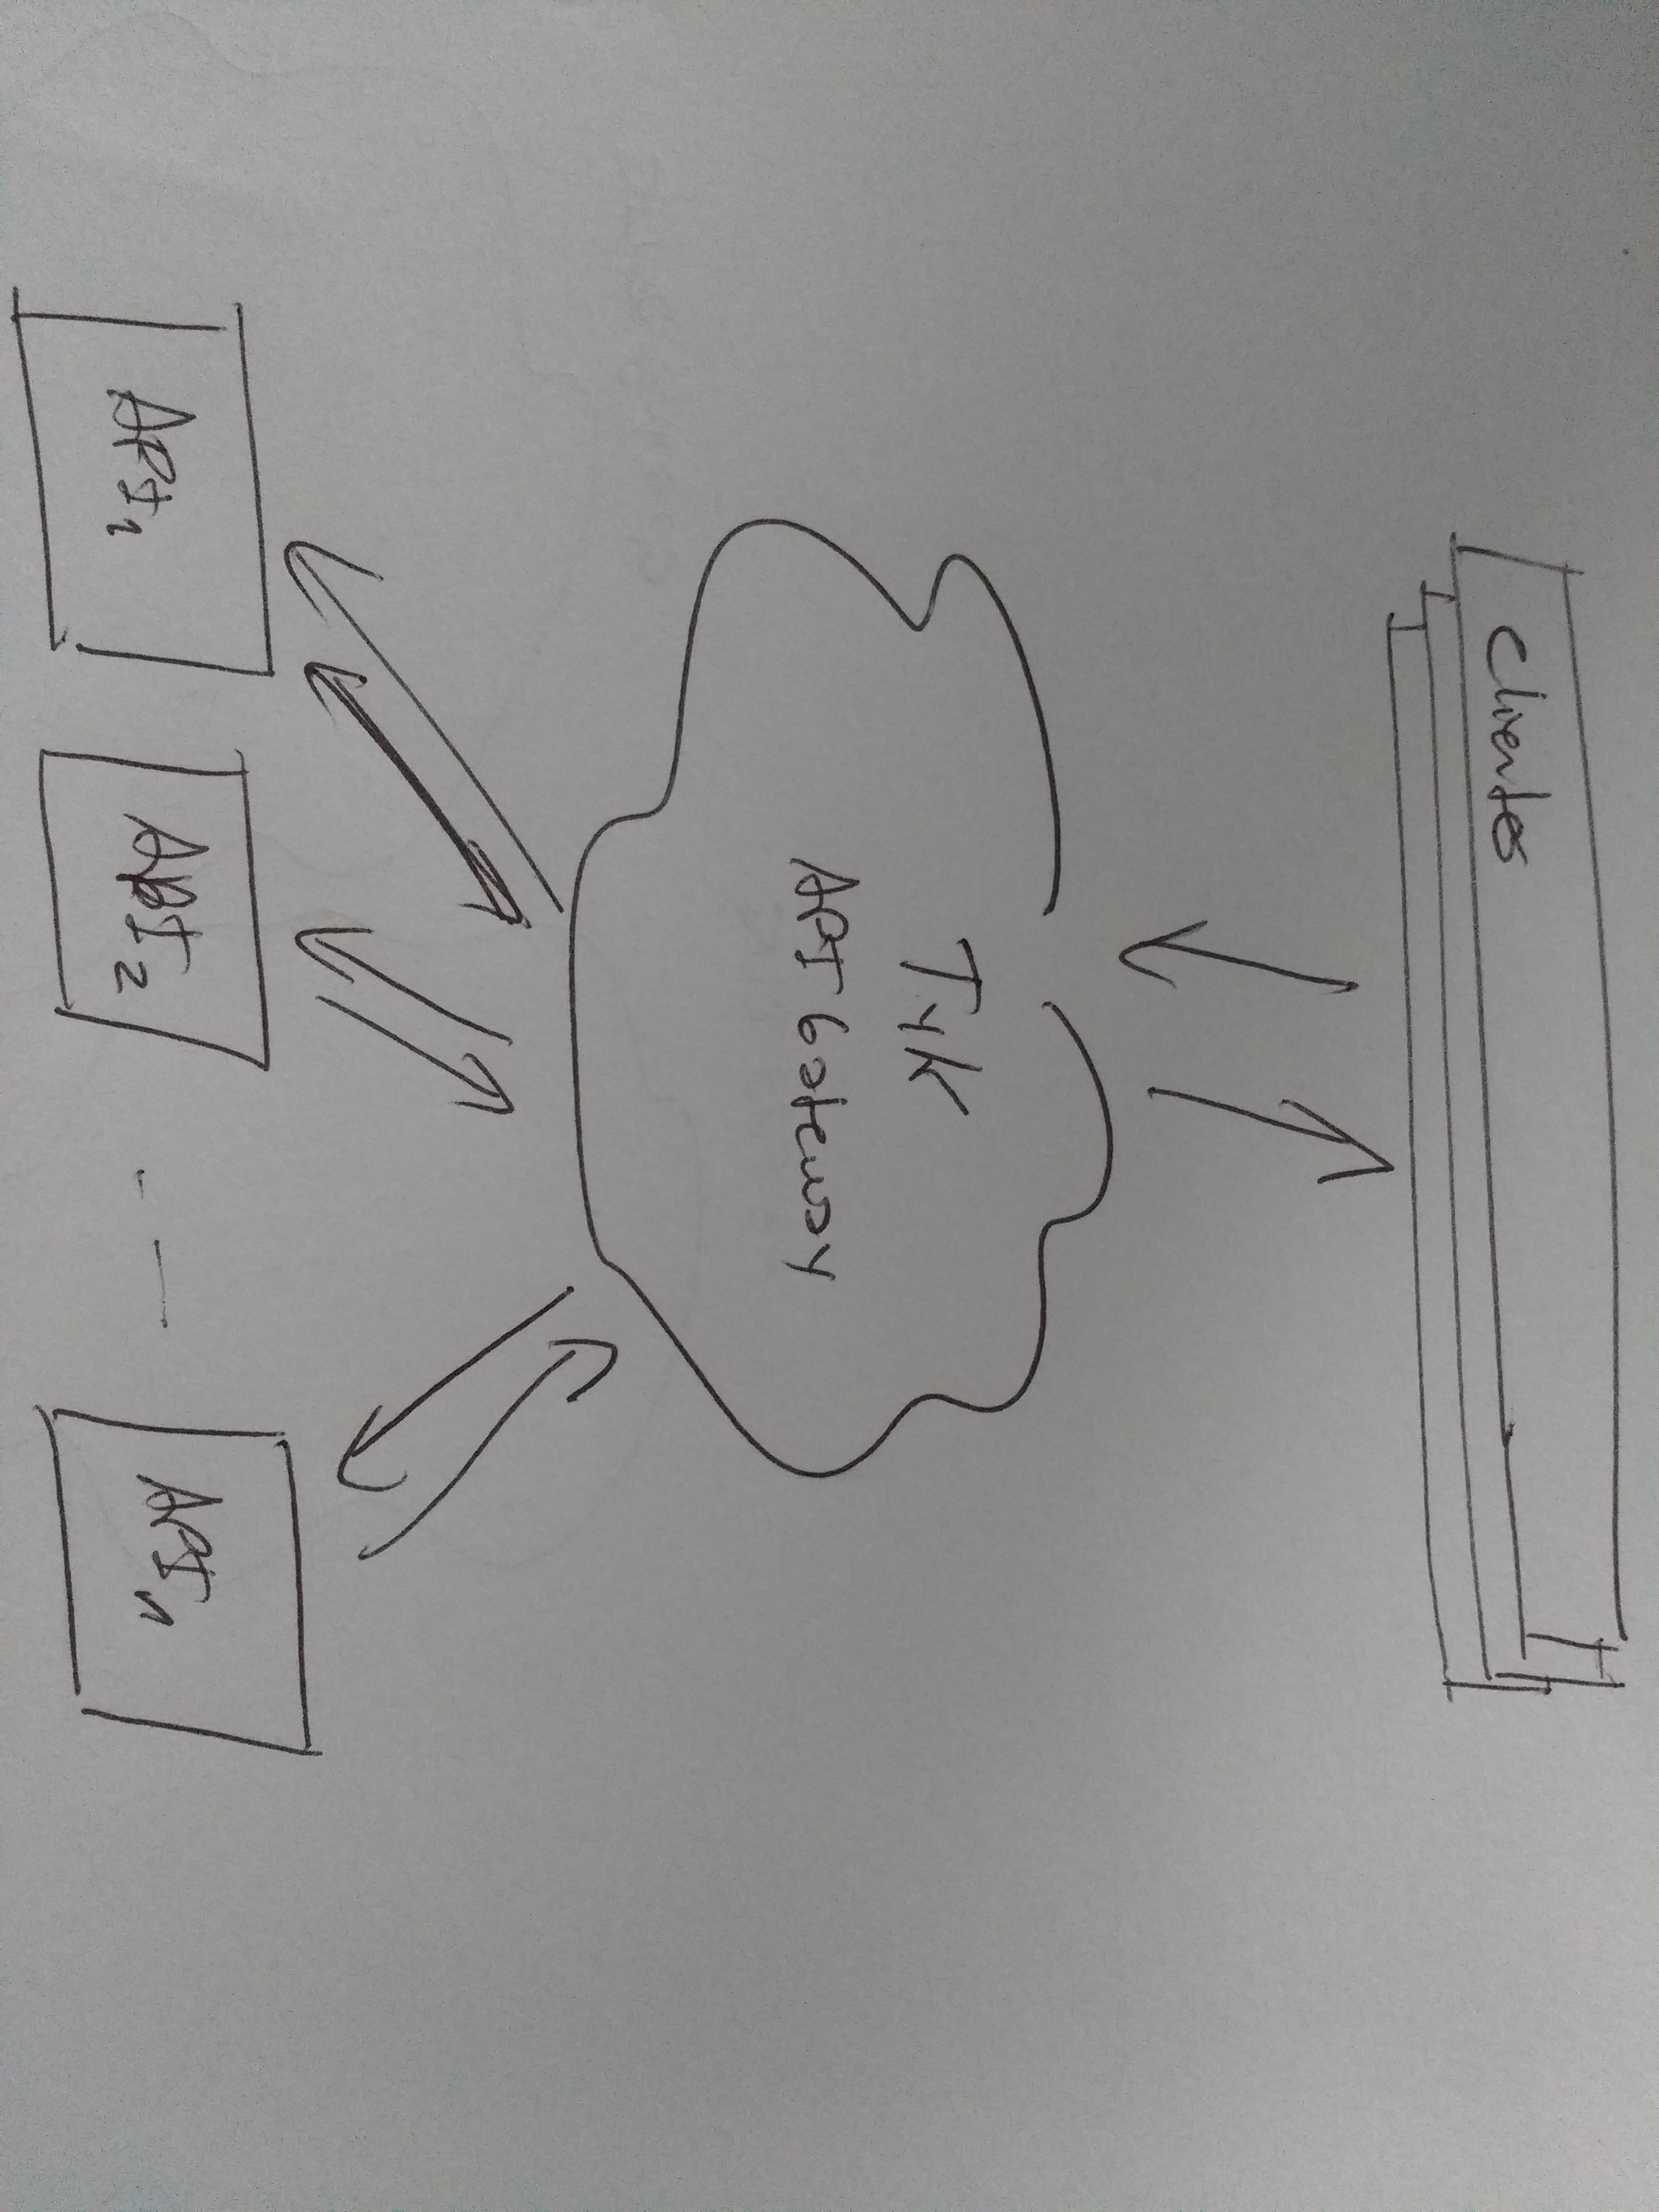 clientes
Tyk
API Gateway
API1
API2
APIn